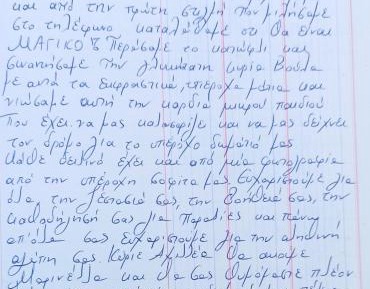 και από την πρώτη στιγμή που μιλήσαμε
στο τηλέφωνο καταλάβαμε ότι θα είναι
ΜΑΓΙΚΟ Περάσαμε το κατώφλι και
συναντήσαμε την γλυκύτατη κυρία Βούλα
με αυτά τα εκφραστικά, υπέροχα μάτια και
νιώσαμε αυτή την καρδιά μικρού παιδιού
που έχει να μας καλωσορίζει και να μας δείχνει
τον δρόμο για το υπέροχο δωμάτιό μας
κάθε δειλινό έχει και από μία φωτογραφία
από την υπέροχη σοφίτα μας Ευχαριστούμε για
όλα, την ζεστασιά σας, την βοήθειά σας, την
καθοδήγησή σας για παραλίες και πάνω
απ' όλα σας ευχαριστούμε για την αληθινή
αγάπη σας. Κύριε Αχιλλέα θα ακούμε
Μαρινέλλα και θα σας θυμόμαστε πλέον